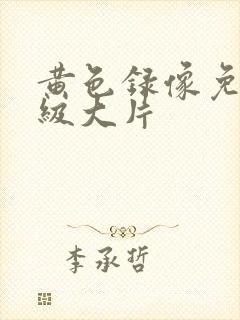 黄色录像免
级大片
李承哲